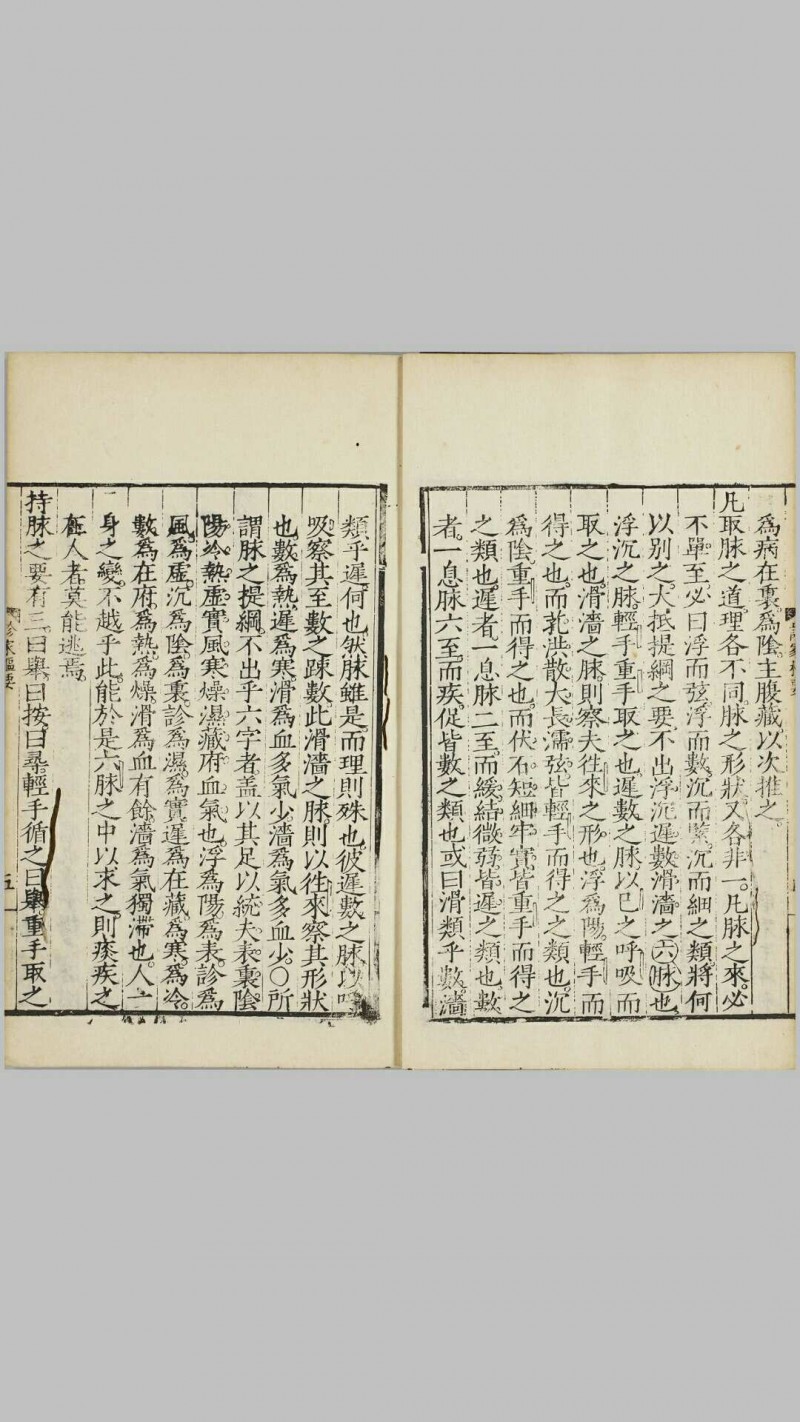 爲病在裏爲陰主腹藏以次推之。
凡取脉之道理各不同。脉之形狀。又各非一。凡脉之來。必
不單至。必曰浮而弦。浮而數。沉而緊。沉而細之類。將何
以別之。大抵提綱之要。不出浮沉遲數滑濇之六脉也。
浮沉之脉。輕手重手取之也。遲數之脉。以巳之呼吸而
取之也。滑濇之脉。則察夫徃來之形也。浮爲陽。輕手而
得之也。而芤洪散大長濡弦。皆輕手而得之之類也。沉
爲陰。重手而得之也。而伏石短細牢實。皆重手而得之
之類也。遲者。一息脉二至。而緩結微弱。皆遲之類也。數
者。一息脉六至。而疾促皆數之類也。或曰滑類乎數。濇
類乎遲。何也。然脉雖是。而理則殊也。彼遲數之脉。以呼
吸察其至數之踈數。此滑濇之脉。則以徃來察其形狀
也。數爲熱。遲爲寒。滑爲血多氣少。濇爲氣多血少。〇所
謂脉之提綱。不出乎六字者。盖以其足以統夫表裏陰
陽冷熱虛實風寒燥濕藏府血氣也。浮爲陽爲表。診爲
風爲虛。沉爲陰爲裏。診爲濕爲實。遲爲在藏。爲寒爲冷。
數爲在府。爲熱爲燥。滑爲血有餘。濇爲氣獨滯也。人一
身之變。不越乎此。能於是六脉之中以求之。則疢疾之
在人者。莫能逃焉。
持脉之要有三。曰舉。曰按。曰尋。輕手循之曰舉。重手取之
診脉樞要
五